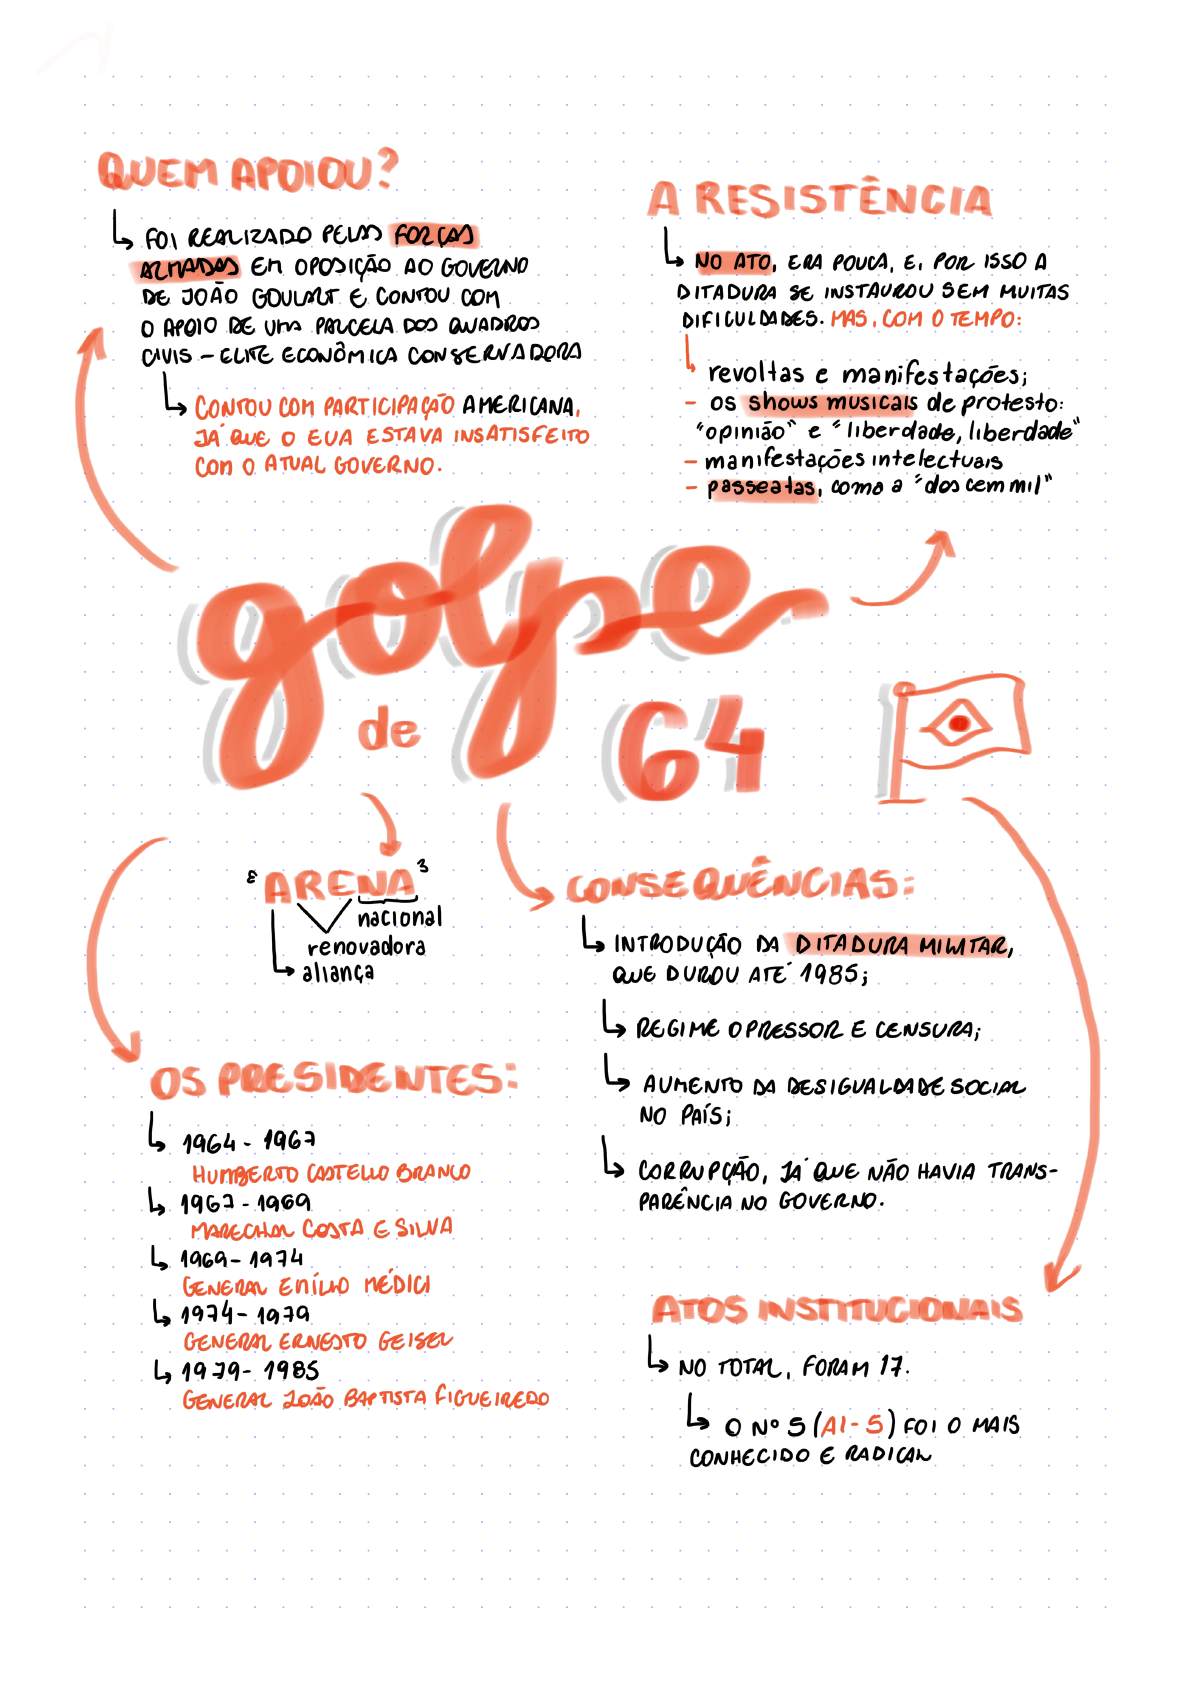 QUEM APOIOU?
FOI REALIZADO PELAS FORÇAS
ARMADAS EM OPOSIÇÃO AO GOVERNO
DE JOÃO GOULART E CONTOU COM
O APOIO DE UMA PARCELA DOS QUADROS
CIVIS - ELITE ECONÔMICA CONSERVADORA
CONTOU COM PARTICIPAÇÃO AMERICANA,
JÁ QUE O EUA ESTAVA INSATISFEITO
COM O ATUAL GOVERNO.
A RESISTÊNCIA
NO ATO, ERA POUCA, E, POR ISSO A
DITADURA SE INSTAUROU SEM MUITAS
DIFICULDADES. MAS, COM O TEMPO:
revoltas e manifestações;
- os shows musicais de protesto:
"opinião" e "liberdade, liberdade"
- manifestações intelectuais
- passeatas, como a "dos cem mil"
golpe
de
64
ARENA
nacional
renovadora
aliança
CONSEQUÊNCIAS:
INTRODUÇÃO DA DITADURA MILITAR,
QUE DUROU ATÉ 1985;
REGIME OPRESSOR E CENSURA;
AUMENTO DA DESIGUALDADE SOCIAL
NO PAÍS;
CORRUPÇÃO, JÁ QUE NÃO HAVIA TRANS-
PARÊNCIA NO GOVERNO.
OS PRESIDENTES:
1964 - 1967
HUMBERTO CASTELLO BRANCO
1967 - 1969
MARECHAL COSTA E SILVA
1969 - 1974
GENERAL EMÍLIO MÉDICI
1974 - 1979
GENERAL ERNESTO GEISEL
1979 - 1985
GENERAL JOÃO BAPTISTA FIGUEIREDO
ATOS INSTITUCIONAIS
NO TOTAL, FORAM 17.
O Nº 5 (AI-5) FOI O MAIS
CONHECIDO E RADICAL